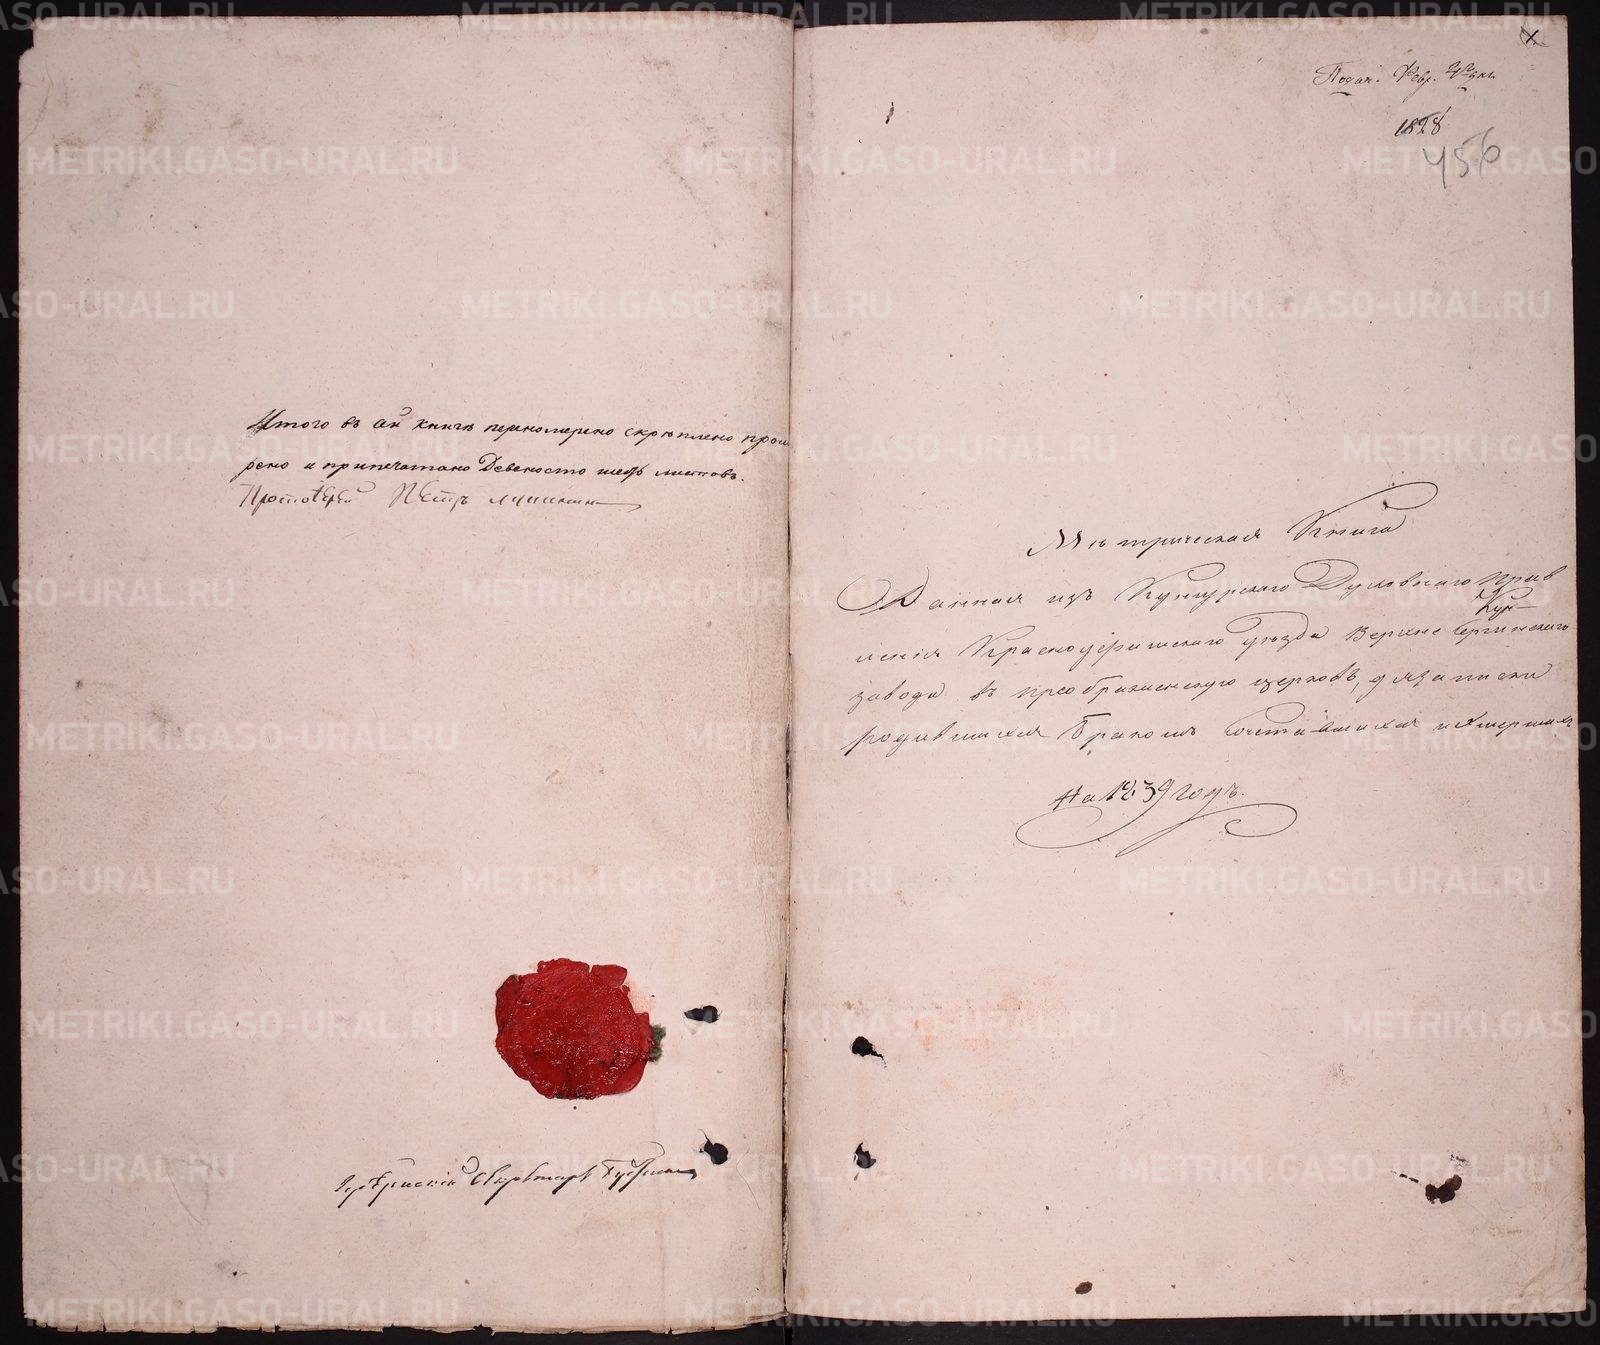 Итого въ сей книгѣ перенумерено скрѣплено прошну
рено и припечатано Девеносто шесть листовъ.
Протоіерей Петръ
Секретарь
Подан. Февр.
456
Метрическая Книга
Данная изъ Кунгурскаго Духовнаго Прав
ленія Красноуфимскаго Уѣзда Верхне Сергинскаго
завода въ преображенскую церковь, для записки
родившихся Бракомъ Сочетавшихся и Умершихъ
на 1839 годъ.
METRIKI.GASO-URAL.RU